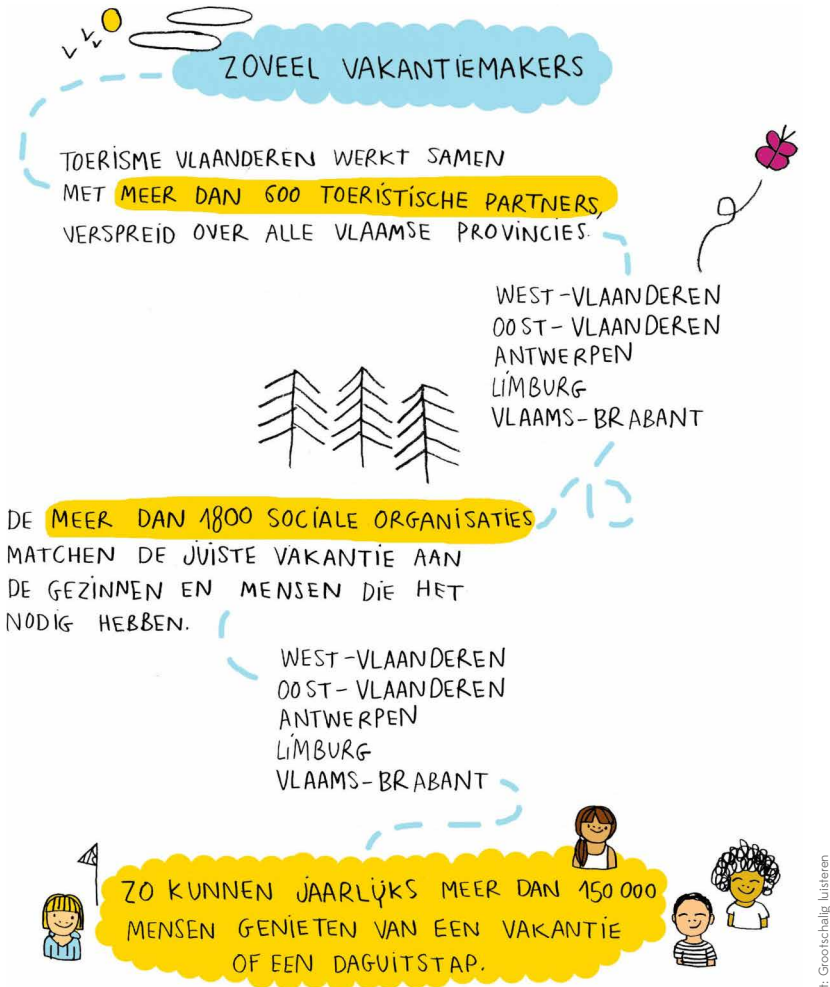 ZOVEEL VAKANTIEMAKERS
TOERISME VLAANDEREN WERKT SAMEN
MET MEER DAN 600 TOERISTISCHE PARTNERS,
VERSPREID OVER ALLE VLAAMSE PROVINCIES.
WEST-VLAANDEREN
OOST-VLAANDEREN
ANTWERPEN
LIMBURG
VLAAMS-BRABANT
DE MEER DAN 1800 SOCIALE ORGANISATIES
MATCHEN DE JUISTE VAKANTIE AAN
DE GEZINNEN EN MENSEN DIE HET
NODIG HEBBEN.
WEST-VLAANDEREN
OOST-VLAANDEREN
ANTWERPEN
LIMBURG
VLAAMS-BRABANT
ZO KUNNEN JAARLIJKS MEER DAN 150 000
MENSEN GENIETEN VAN EEN VAKANTIE
OF EEN DAGUITSTAP.
Grootschalig luisteren